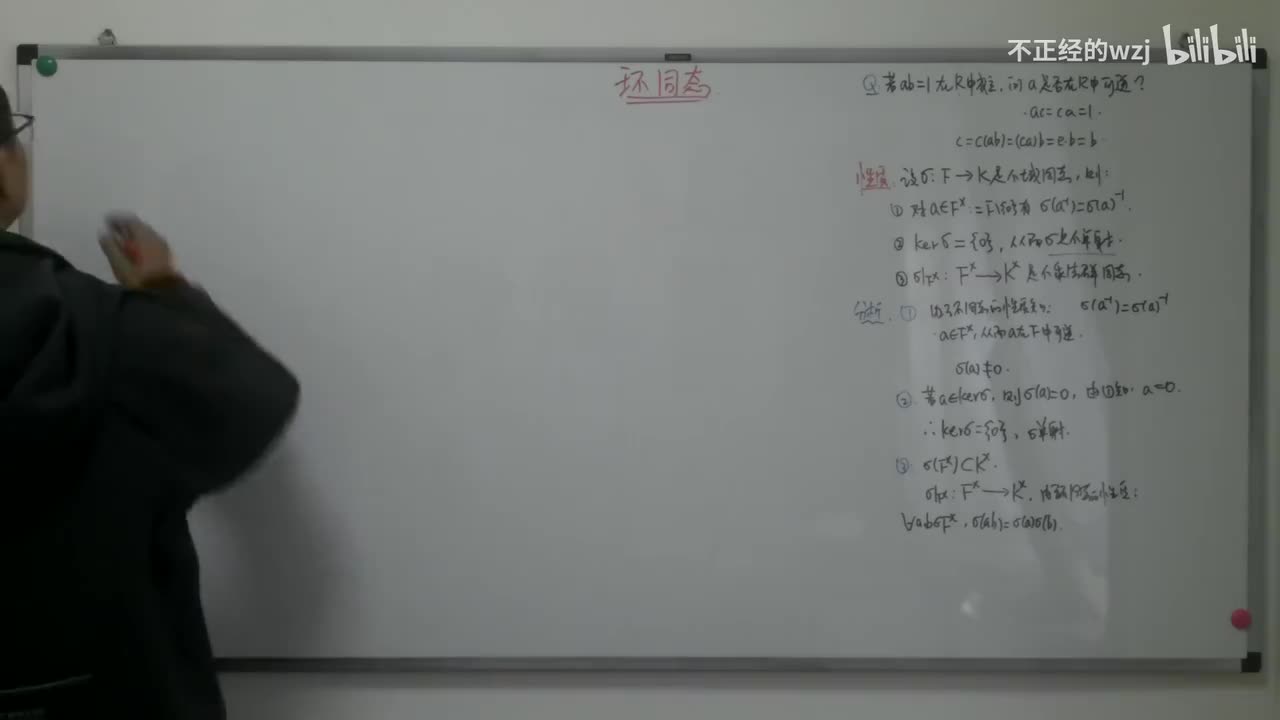 不正经的wzj bilibili
环同态
Q 若ab=1在R中成立,问a是否在R中可逆?
ac=ca=1.
c=c(ab)=(ca)b=e·b=b.
性质. 设σ: F→K是个域同态,则:
① 对a∈F^x:=F\{0}有 σ(a⁻¹)=σ(a)⁻¹.
② kerσ={0}, 从而σ是个单射.
③ σ|F^x: F^x→K^x 是个乘法群同态.
分析. ① 由环同态的性质知: σ(a⁻¹)=σ(a)⁻¹
a∈F^x, 从而a在F中可逆.
σ(a)≠0.
②. 若a∈kerσ, 则σ(a)=0, 由①知. a=0.
∴kerσ={0}, σ单射.
③ σ(F^x)⊂K^x.
σ|F^x: F^x→K^x, 由环同态的性质:
∀ab∈F^x, σ(ab)=σ(a)σ(b).